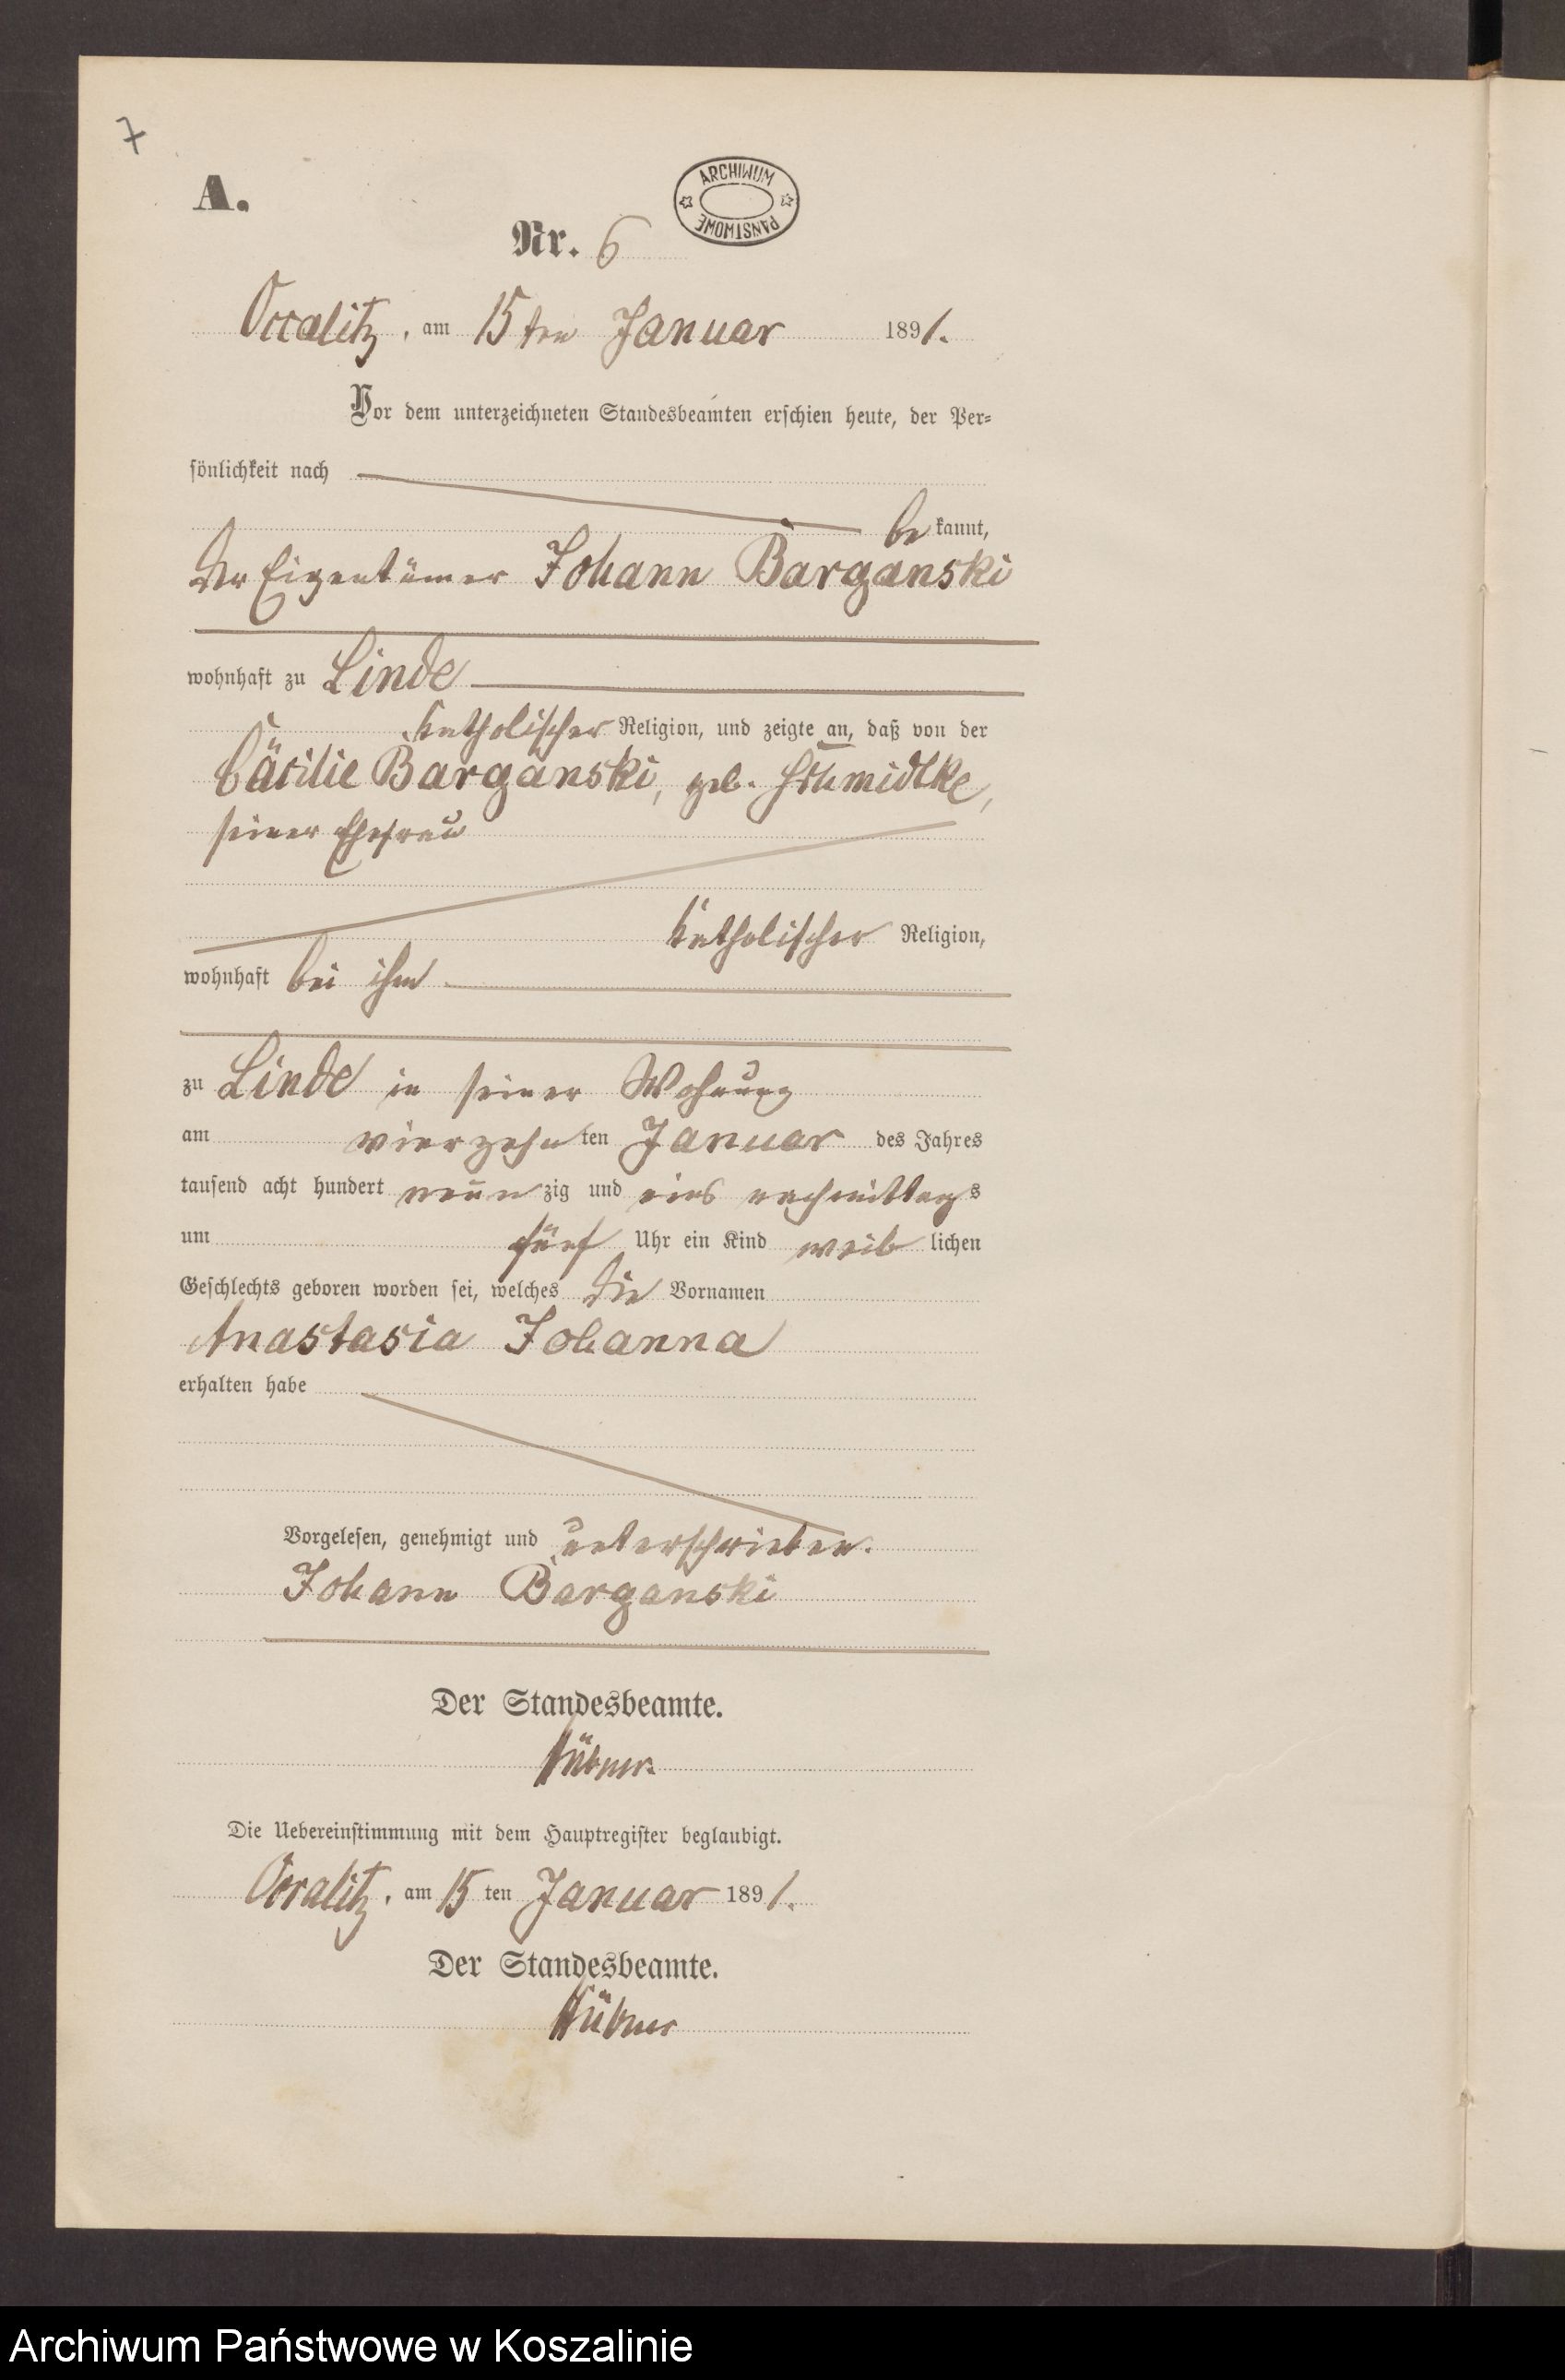 7
A.
ARCHIWUM PAŃSTWOWE
Nr. 6
Occalitz, am 15ten Januar 1891.
Vor dem unterzeichneten Standesbeamten erschien heute, der Per-
sönlichkeit nach
bekannt,
der Eigentümer Johann Barganski
wohnhaft zu Linde
katholischer Religion, und zeigte an, daß von der
Cäcilie Barganski, geb. Schmidtke,
seiner Ehefrau
katholischer Religion,
wohnhaft bei ihm
zu Linde in seiner Wohnung
am vierzehnten Januar des Jahres
tausend acht hundert neunzig und eins nachmittags
um fünf Uhr ein Kind weiblichen
Geschlechts geboren worden sei, welches die Vornamen
Anastasia Johanna
erhalten habe
Vorgelesen, genehmigt und unterschrieben.
Johann Barganski
Der Standesbeamte.
Hübner.
Die Uebereinstimmung mit dem Hauptregister beglaubigt.
Occalitz, am 15 ten Januar 1891.
Der Standesbeamte.
Hübner
Archiwum Państwowe w Koszalinie